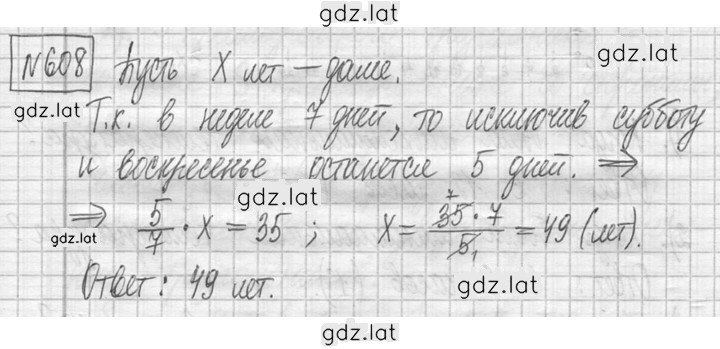 gdz.lat
№608 Пусть X лет – даме. gdz.lat
gdz.lat Т.к. в неделе 7 дней, то исключив субботу
и воскресенье останется 5 дней. ⇒
gdz.lat
gdz.lat ⇒ 5/7 · X = 35 ; X = 35 7 · 7 / 5 1 = 49 (лет).
Ответ: 49 лет. gdz.lat
gdz.lat